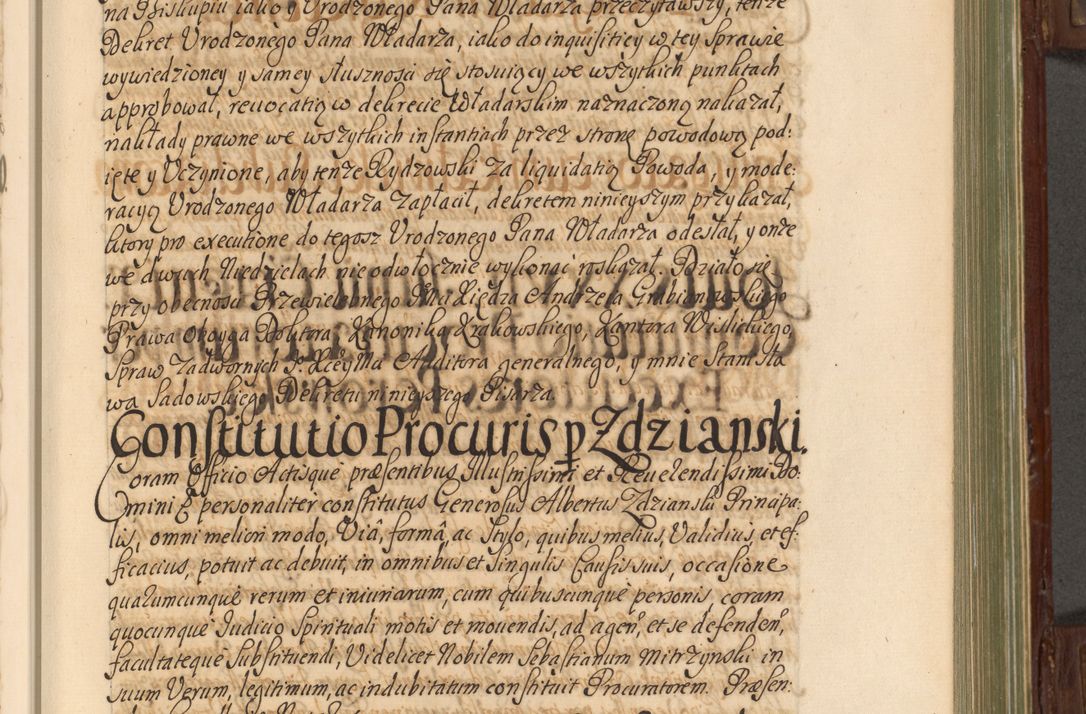 na Biskupiu iako y Urodzonego Pana Władarza przeczytawszy, tenze
Dekret Urodzonego Pana Władarza, iako do inquisitiey w tey Sprawie
wywiedzioney y samey słusznosci się stosuiący we wszytkich punktach
approbował, revocatią w dekrecie Władarskim naznaczoną nakazał,
nakłady prawne we wszytkich instantiach przez stronę powodową pod:
ięte y Uczynione, aby tenze Rydzowski za liquidatią Powoda, y mode:
racyą Urodzonego Władarza zapłacił, dekretem ninieyszym przykazał,
ktory pro executione do tegosz Urodzonego Pana Władarza odesłał, y onze
we dwuch Niedzielach nieodwłocznie wykonac roskazał. Działo się
przy obecnosci Przewielebnego IMci Xiędza Andrzeia Grabianowskiego
Prawa Oboyga Doktora, Kanonika Krakowskiego, Kantora Wislickiego,
Spraw Zadwornych J. Xcey Mci Auditora generalnego, y mnie Stanisła
wa Sadowskiego Dekretu ninieyszego Pisarza.
Constitutio Procuris p Zdzianski.
Coram Officio Actisque præsentibus Illustrissimi et Reverendissimi Do:
mini E personaliter constitutus Generosus Albertus Zdzianski Principa
lis, omni meliori modo, Viâ, formâ, ac Stylo, quibus melius, Validius, et ef:
ficacius, potuit ac debuit, in omnibus et Singulis Causis suis, occasione
quarumcunque rerum et iniuriarum, cum quibuscunque personis, coram
quocunque Iudicio Spirituali motis et movendis, ad agen, et se defenden,
facultateque Substituendi, Videlicet Nobilem Sebastianum Mitrzynski in
suum Verum, legitimum, ac indubitatum constituit Procuratorem. Præsen: